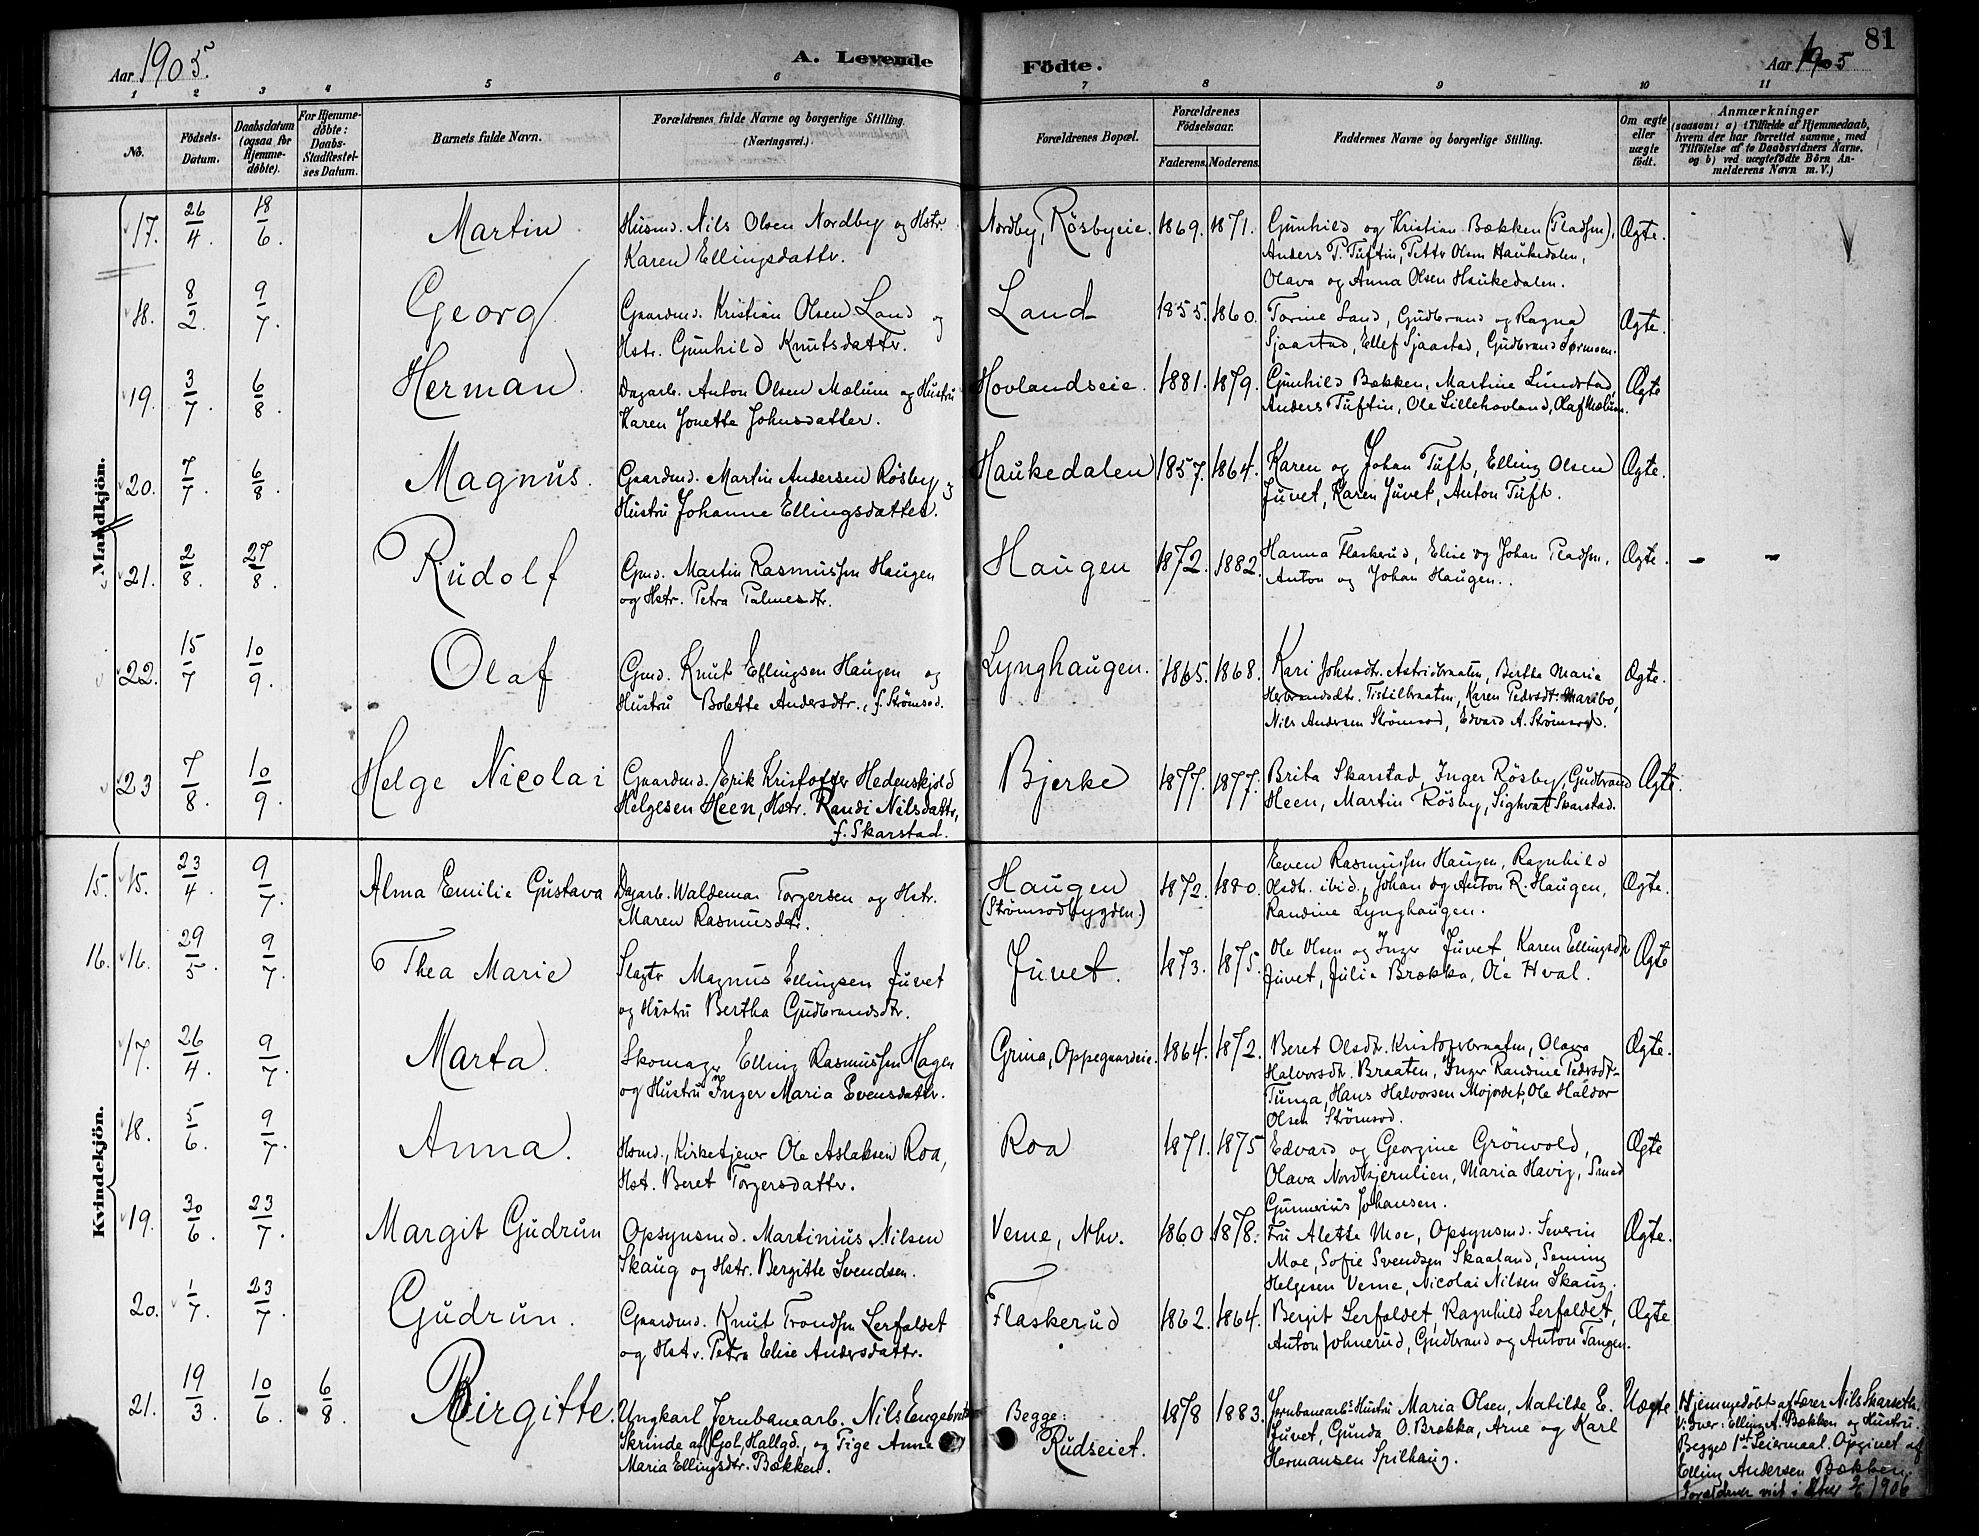 Aar 1905.
A. Levende
Födte.
Aar 1905
81
1 2 3 4 5 6 7 8 9 10 11
No.
Födsels-Datum.
Daabsdatum (ogsaa for Hjemme-döbte).
For Hjemme-döbte: Daabs-Stadfæstel-ses Datum.
Barnets fulde Navn.
Forældrenes fulde Navne og borgerlige Stilling. (Næringsvei.)
Forældrenes Bopæl.
Forældrenes Födselsaar.
Faderens. Moderens.
Faddernes Navne og borgerlige Stilling.
Om ægte eller uægte födt.
Anmærkninger
(saasom: a) i Tilfælde af Hjemmedaab, hvem der har forrettet samme, med Tilföielse af to Daabsvidners Navne, og b) ved uægtefödte Börn An-melderens Navn m. V.)
Mandkjön.
17. 26/4. 18/6. Martin. Husmd. Nils Olsen Nordby og Hstr. Nordby, Rösbyeie. 1869. 1871. Gunhild og Kristian Bækken (Pladsm), Ægte.
Karen Ellingsdattr. Anders P. Tuftin, Petter Olsen Haukedalen,
Olava og Anna Olsen Haukedalen.
18. 8/2. 9/7. Georg Gaardmd. Kristian Olsen Land og Land 1855. 1860. Torine Land, Gudbrand og Ragna Ægte.
Hstr. Gunhild Knutsdattr. Sjaastad, Ellef Sjaastad, Gudbrand Sörmoen.
19. 3/7 6/8. Herman. Dagarb. Anton Olsen Mælum og Hustru Hovlandseie. 1881. 1879. Gunhild Bækken, Martine Lundstad, Ægte
Karen Jonette Johnsdatter. Anders Tuftin, Ole Lillehovland, Olaf Mælum.
20. 7/7. 6/8. Magnus. Gaardmd. Martin Andersen Rösby og Haukedalen 1857. 1864. Karen og Johan Tuft, Elling Olsen Ægte.
Hustru Johanne Ellingsdatter. Juvet, Karen Juvet, Anton Tuft.
21. 2/8. 27/8. Rudolf Gmd. Martin Rasmussen Haugen Haugen 1872. 1882. Hanna Flaskerud, Elise og Johan Pladsm, Ægte.
og Hstr. Petra Palmesdtr. Anton og Johan Haugen.
22. 15/7 10/9. Olaf Gmd. Knut Ellingsen Haugen og Lynghaugen. 1865. 1868. Kari Johnsdtr. Astridbraaten, Berthe Maria Ægte.
Hustru Bolette Andersdtr., f. Strömsod. Herbrandsdtr. Tistilbraaten, Karen Pedersdt. Maribo,
Nils Andersen Strömsod, Edvard A. Strömsod.
23 7/8. 10/9. Helge Nicolai Gaardmd. Erik Kristoffer Hedenskjold Bjerke 1877. 1877. Brita Skarstad, Inger Rösby, Gudbrand Ægte.
Helgesen Heen, Hstr. Randi Nilsdattr, Heen, Martin Rösby, Sighvat Skarstad.
f. Skarstad.
Kvindekjön.
15. 15. 23/4. 9/7. Alma Emilie Gustava Dagarb. Waldemar Torgersen og Hstr. Haugen 1872. 1880. Even Rasmussen Haugen, Ragnhild Ægte.
Maren Rasmusdtr. (Strömsodbygden.) Olsdtr. ibid., Johan og Anton R. Haugen,
Randine Lynghaugen.
16. 16. 29/5. 9/7. Thea Marie Slagtr Magnus Ellingsen Juvet Juvet. 1873. 1875. Ole Olsen og Inger Juvet, Karen Ellingsdtr Ægte
og Hustru Bertha Gudbrandsdtr. Juvet, Julie Brække, Ole Hval.
17. 26/4. 9/7. Marta. Skomagr Elling Rasmussen Hagen Grina, Oppegaardeie. 1864. 1872. Beret Olsdtr. Kristoferbraaten, Olava Ægte.
og Hustru Inger Maria Evensdattr. Halvorsdtr. Braaten, Inger Randine Pedersdt-
Tunga, Hans Halvorsen Mojordet, Ole Haldor
Olsen Strömsod.
18. 5/6. 9/7. Anna. Hsmd., Kirketjener Ole Aslaksen Roa, Roa 1871. 1875 Edvard og Georgine Grönvold, Ægte
Hst. Beret Torgersdattr. Olava Nordbjerulien, Maria Havig, Smed
Gunnerius Johansen.
19. 30/6. 23/7. Margit Gudrun Opsynsmd. Martinius Nilsen Veme, Nhv. 1860. 1878. Fru Alette Moe, Opsynsmd. Severin Ægte.
Skaug og Hstr. Bergitte Svendsen. Moe, Sofie Svendsen Skaaland, Seming
Helgesen Veme, Nicolai Nilsen Skaug.
20. 1/7. 23/7 Gudrun. Gaardmd. Knut Trondsen Lerfaldet Flaskerud 1862. 1864. Bergit Lerfaldet, Ragnhild Lerfaldet, Ægte
og Hstr. Petra Elise Andersdattr. Anton Johnerud, Gudbrand og Anton Tangen.
21. 19/3. 10/6. 6/8. Birgitte. Ungkarl Jernbanearb. Nils Engebrets Begge: 1878 1883. Jernbanearb.s Hustru Maria Olsen, Matilde E. Uægte Hjemmedöbt af Lærer Nils Skarseth.
Skrinde af Gol, Hallgd., og Pige Anne Rudseiet. Juvet, Gunda O. Brække, Arne og Karl Vidner: Elling A. Bækken og Hustru.
Maria Ellingsdtr. Bækken. Hermansen Spilhaug. Begges 1ste Leiermaal. Opgivet af
Elling Andersen Bækken.
Forældrene viet i 1906